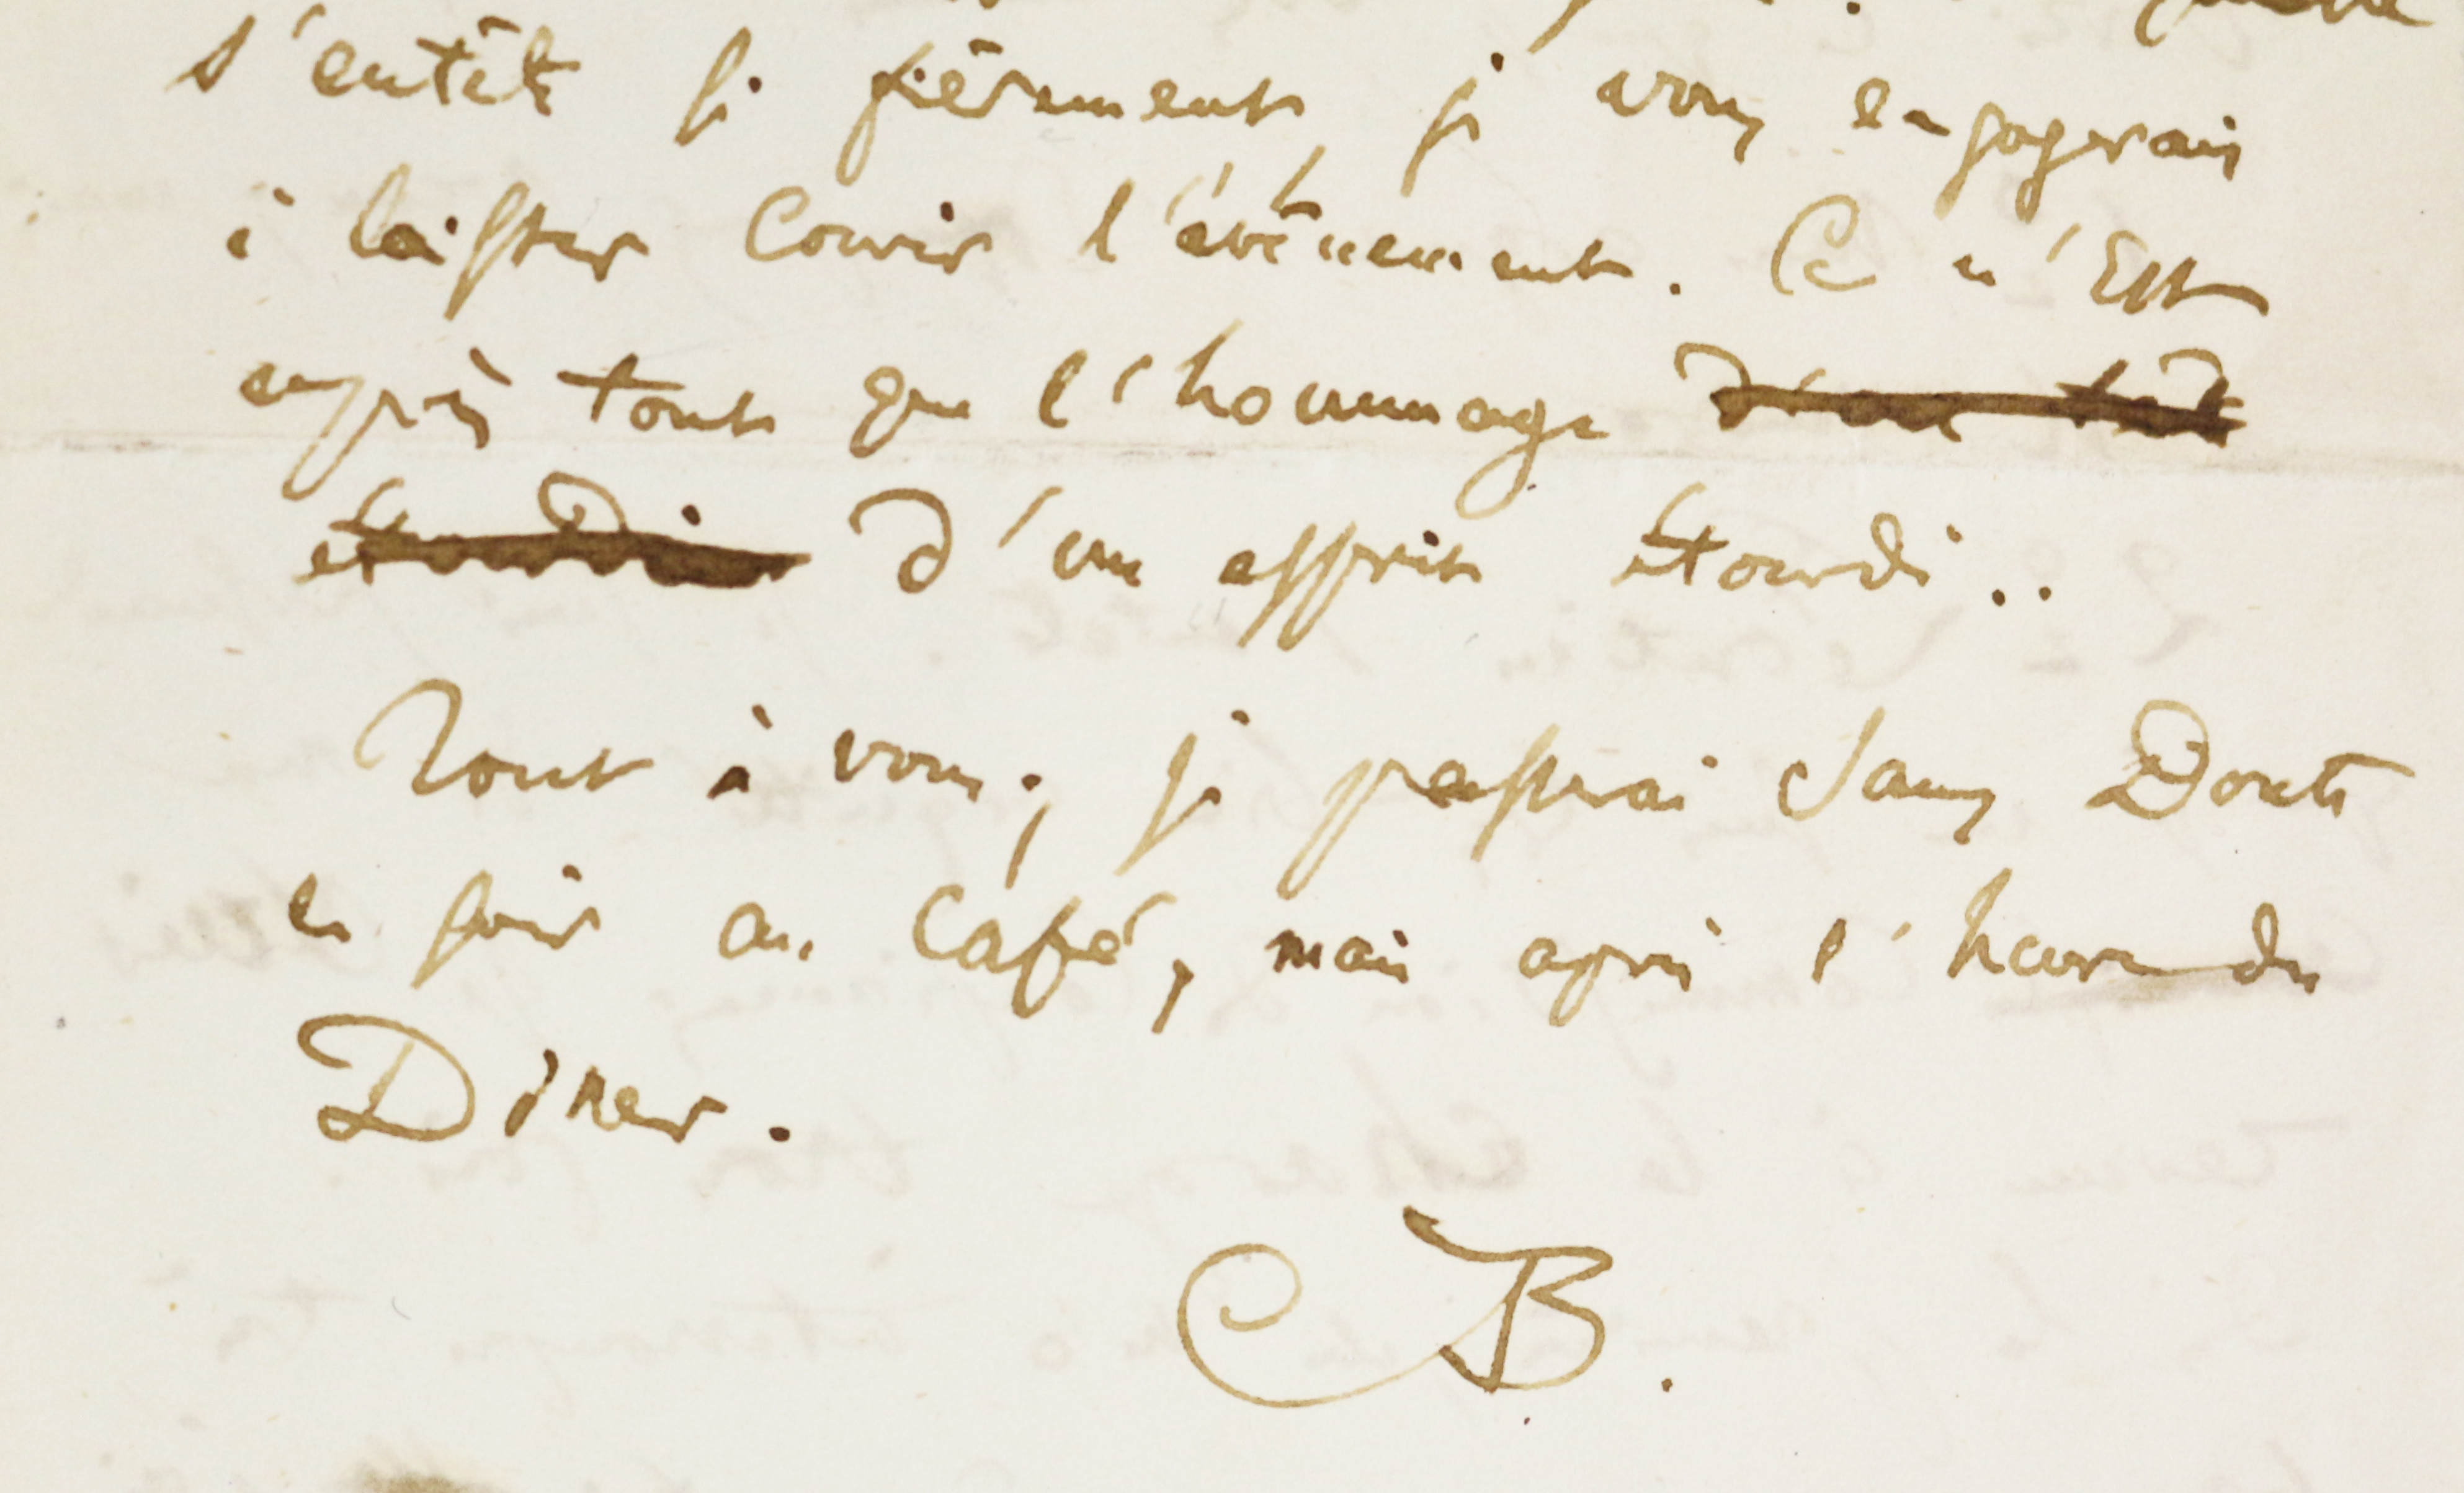 s'entêt si fièrement, je vous engagerais
à laisser courir l'évènement. Ce n'Est
après tout que l'hommage d'un
étourdi d'un esprit étourdi..
Tout à vous; je passerai sans Doute
le soir au Café, mais après l'heure du
Diner.
CB.